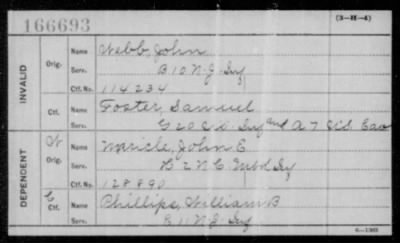 166693
(3-H-4)
INVALID
Orig.
Name Webb, John
Serv. B 10 N. J. Inf
Ctf. No. 114234
Ctf.
Name Foster, Samuel
Serv. G 20 C. D. Inf and A 7 Cav
DEPENDENT
W
Orig.
Name Maricle, John E
Serv. B 2 N C Mtd Inf
Ctf. No. 128890
C
Ctf.
Name Phillips, William B
Serv. B 11 N J Inf